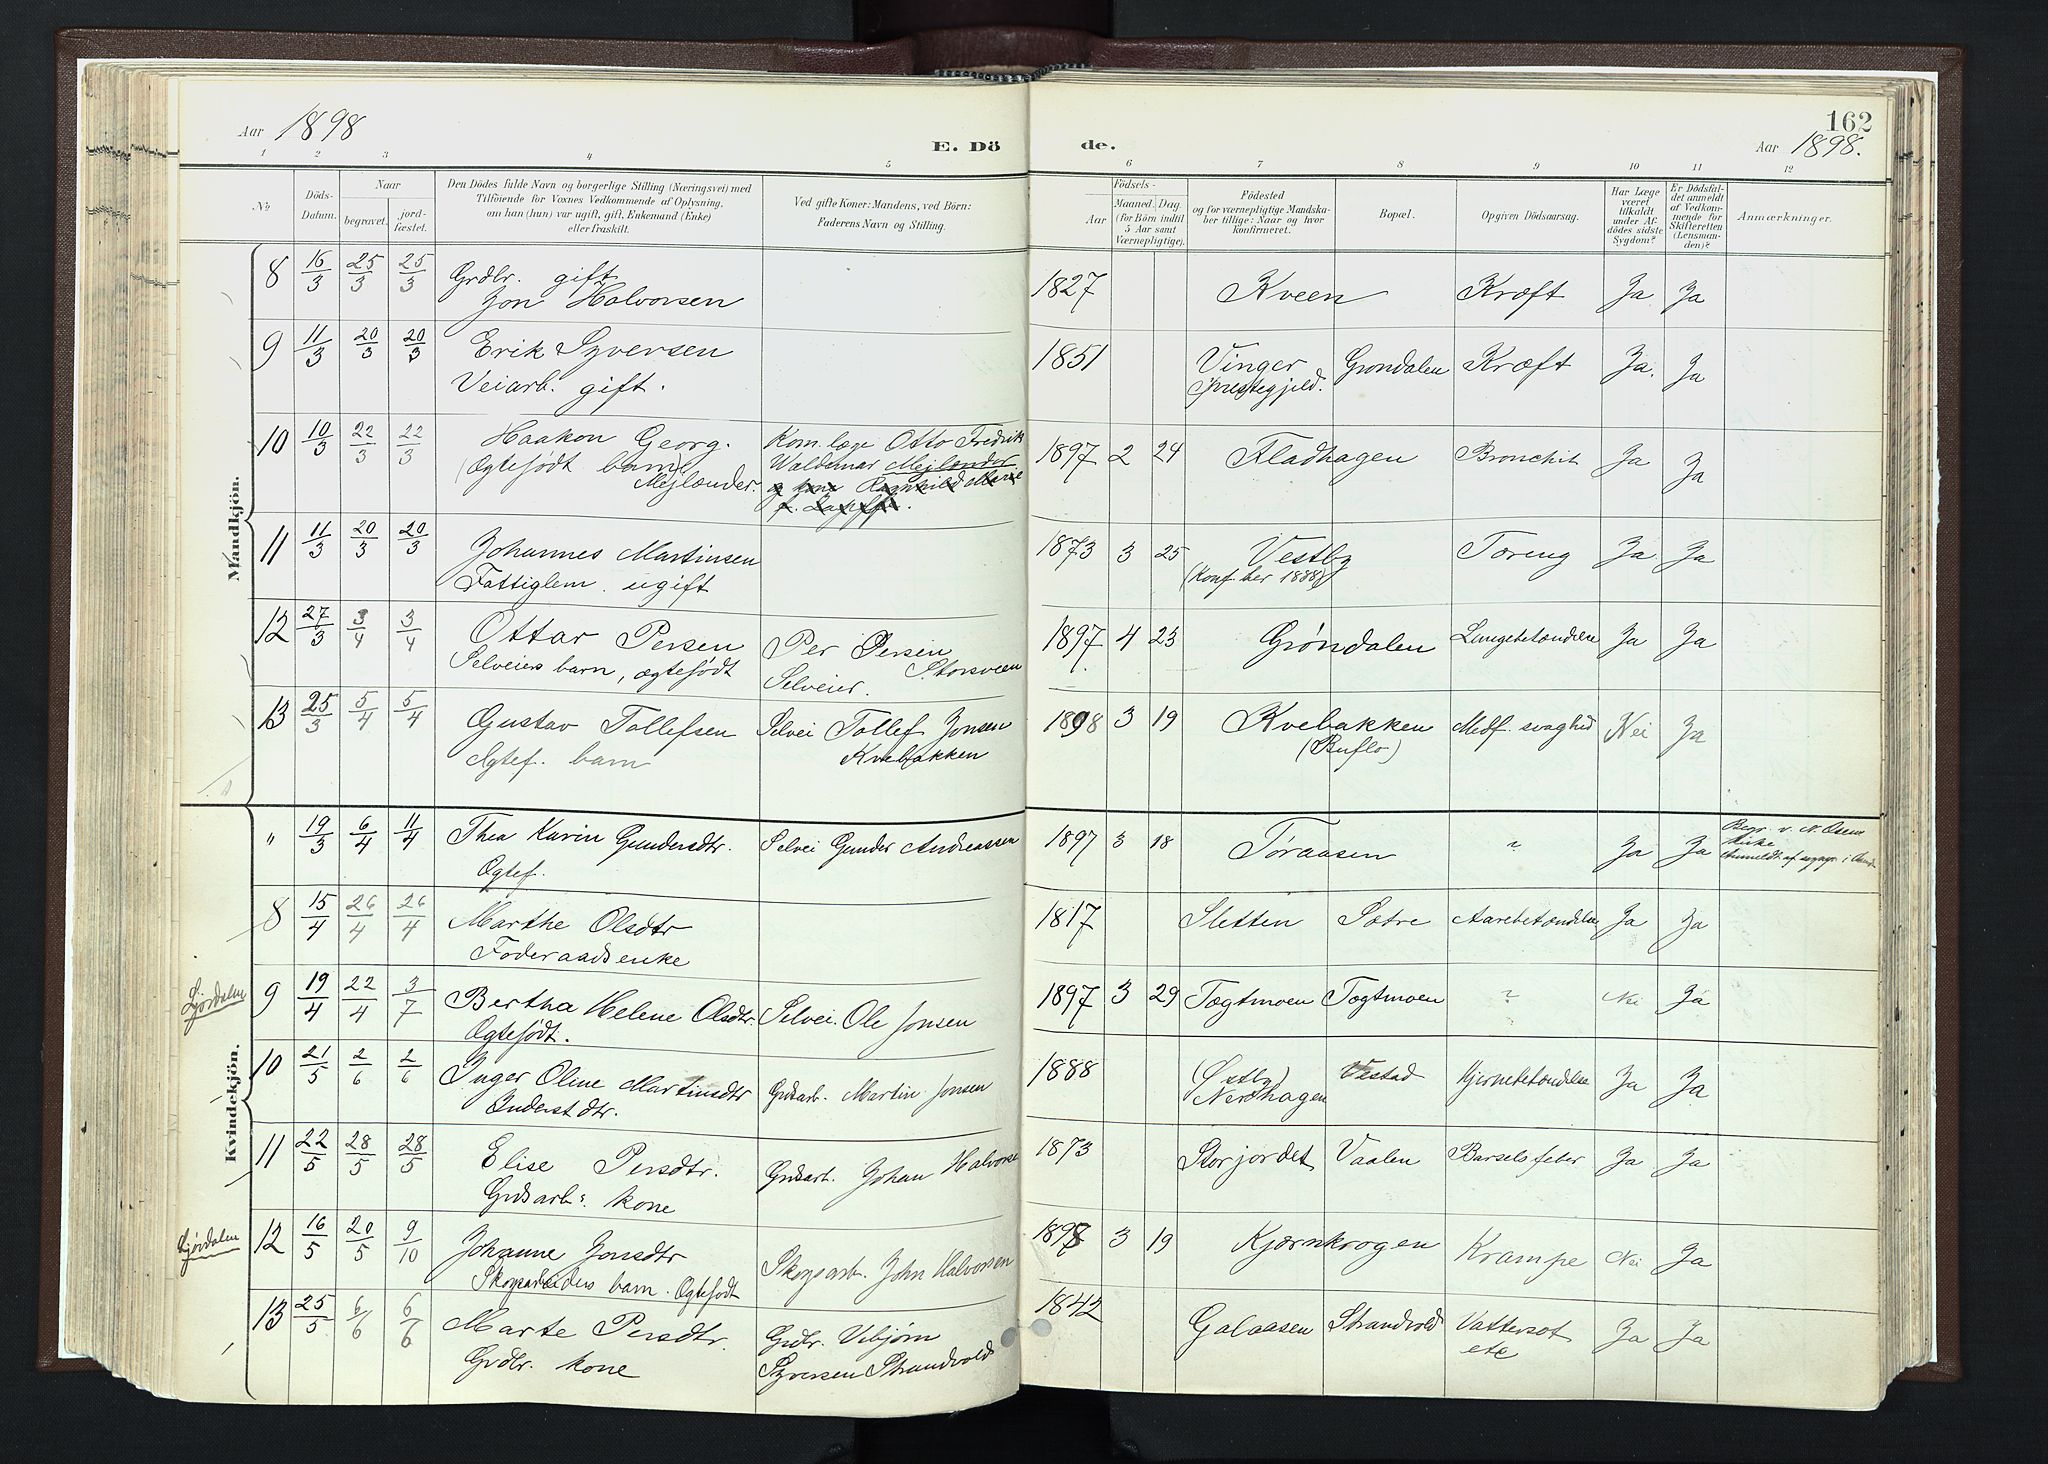 Aar 1898
E. Dö de.
162
Aar 1898.
1 2 3 4 5 6 7 8 9 10 11 12
No
Döds-Datum.
Naar
begravet.
jord-fæstet.
Den Dödes fulde Navn og borgerlige Stilling (Næringsvei) med
Tilföiende for Voxnes Vedkommende af Oplysning,
om han (hun) var ugift, gift, Enkemand (Enke)
eller fraskilt.
Ved gifte Koner: Mandens, ved Börn:
Faderens Navn og Stilling.
Födsels-
Aar
Maaned. Dag.
(for Börn indtil
5 Aar samt
Værnepligtige).
Födested
og for værnepligtige Mandska-
ber tillige: Naar og hvor
konfirmeret.
Bopæl.
Opgiven Dödsaarsag.
Har Læge
været
tilkaldt
under Af-
dödes sidste
Sygdom?
Er Dödsfal-
det anmeldt
af Vedkom-
mende for
Skifteretten
(Lensman-
den)?
Anmærkninger.
Mandkjön.
8 16/3 25/3 25/3 Grdbr. gift 1827 Kveen Kræft Ja Ja
Jon Halvorsen
9 11/3 20/3 20/3 Erik Syversen 1851 Vinger Grøndalen Kræft Ja. Ja
Veiarb. gift. Præstegjeld.
10 10/3 22/3 22/3 Haakon Georg. Kom.læge Otto Fredrik 1897 2 24 Fladhagen Bronchit Ja Ja
(Ægtefødt barn) Waldemar Mejlænder
Mejlænder. og kone Ragnhild Marie
f.
11 11/3 20/3 20/3 Johannes Martinsen 1873 3 25 Vestby Tæring Ja Ja
Fattiglem. ugift (Konf. her 1888)
12 27/3 3/4 3/4 Ottar Persen Per Persen 1897 4 23 Grøndalen Lungebetændelse Ja Ja
Selveiers barn, ægtefødt Storsveen
Selveier.
13 25/3 5/4 5/4 Gustav Tollefsen Selvei Tollef Jonsen 1898 3 19 Kvebakken Medf. svaghed Nei Ja
Ægtef. barn Kvebakken (Buflo)
Kvindekjön.
" 19/3 6/4 11/4 Thea Karin Gundersdtr. Selvei Gunder Andreassen 1897 3 18 Tøraasen ? Ja Ja Beg. v. N. Osens
Ægtef. Kirke
Anmeldt af
8 15/4 26/4 26/4 Marthe Olsdtr 1817 Sletten Sætre Aarebetændelse Ja Ja
Føderaadsenke
Ljørdalen
9 19/4 22/4 3/7 Bertha Helene Olsdtr. Selvei. Ole Jonsen 1897 3 29 Tægtmoen Tægtmoen ? Nei Ja
Ægtefødt.
10 21/5 2/6 2/6 Inger Oline Martinsdtr Grdsarb. Martin Jonsen 1888 (Østby) Vestad Hjernebetændelse Ja Ja
Inderst dtr. Nordhagen
11 22/5 28/5 28/5 Elise Persdtr. Grdsarb. Johan Halvorse 1873 Storjordet Vaalen Barselsfeber Ja Ja
Grdsarbs. kone
Ljørdalen
12 16/5 20/5 9/10 Johanne Jonsdtr Skogsarb. John Halvorsen 1898 3 19 Kjærnkrogen Krampe Nei Ja
Skogsarbeiders barn. Ægtefødt
13 25/5 6/6 6/6 Marte Persdtr. Grdbr. Vebjørn 1842 Galaasen Strandvold Vattersot Ja Ja
Grdbr. kone Syversen Strandvold etc